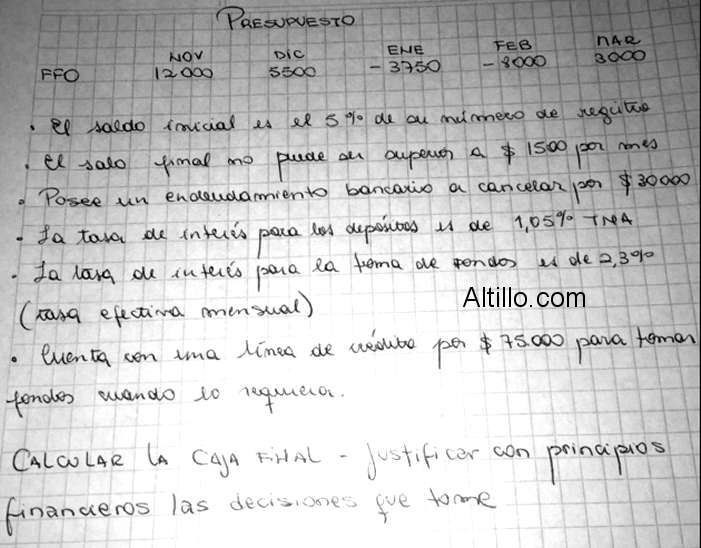 PRESUPUESTO
NOV DIC ENE FEB MAR
FFO 12000 5500 - 3750 - 8000 3000
• El saldo inicial es el 5% de su número de registro
• El salo final no puede ser superior a $ 1500 por mes
• Posee un endeudamiento bancario a cancelar por $30000
- La tasa de interés para los depósitos es de 1,05% TNA
- La tasa de interés para la toma de fondos es de 2,3%
(tasa efectiva mensual)
Altillo.com
• Cuenta con una línea de crédito por $ 75.000 para tomar
fondos cuando lo requiera.
CALCULAR LA CAJA FINAL - Justificar con principios
financieros las decisiones que tome